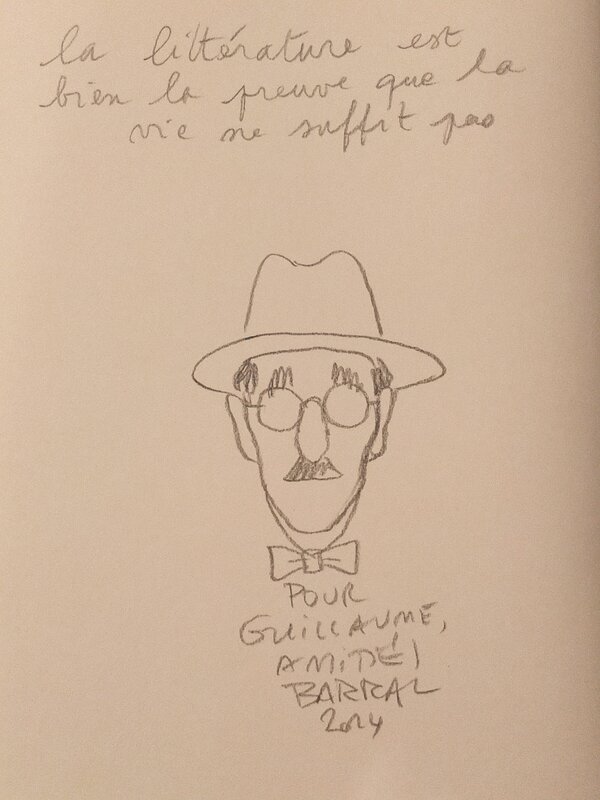 la littérature est
bien la preuve que la
vie ne suffit pas
POUR
GUILLAUME,
AMITIÉ!
BARRAL
2014